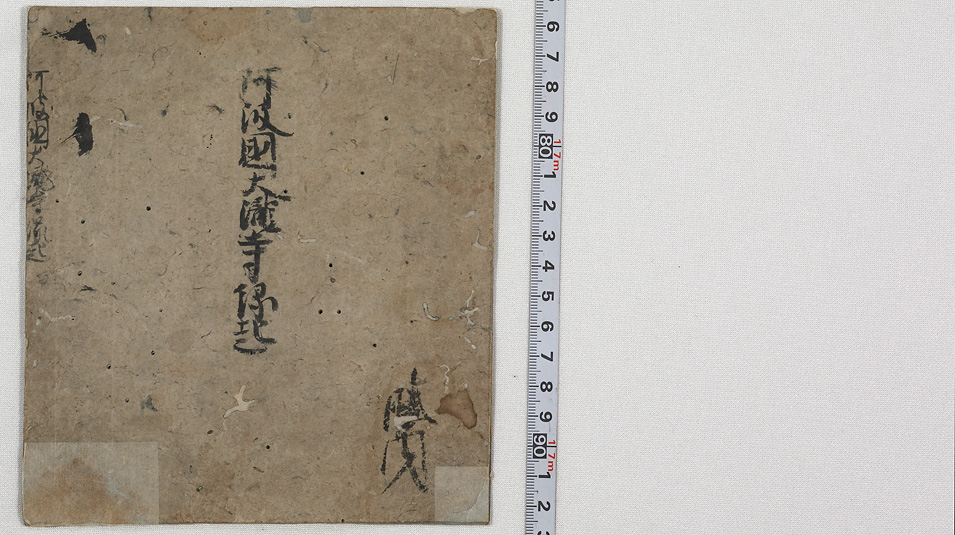 阿波國大瀧寺縁起
阿波國大瀧寺縁起
6
7
8
9
80 17m
1
2
3
4
5
6
7
8
9
90 17m
1
2
3